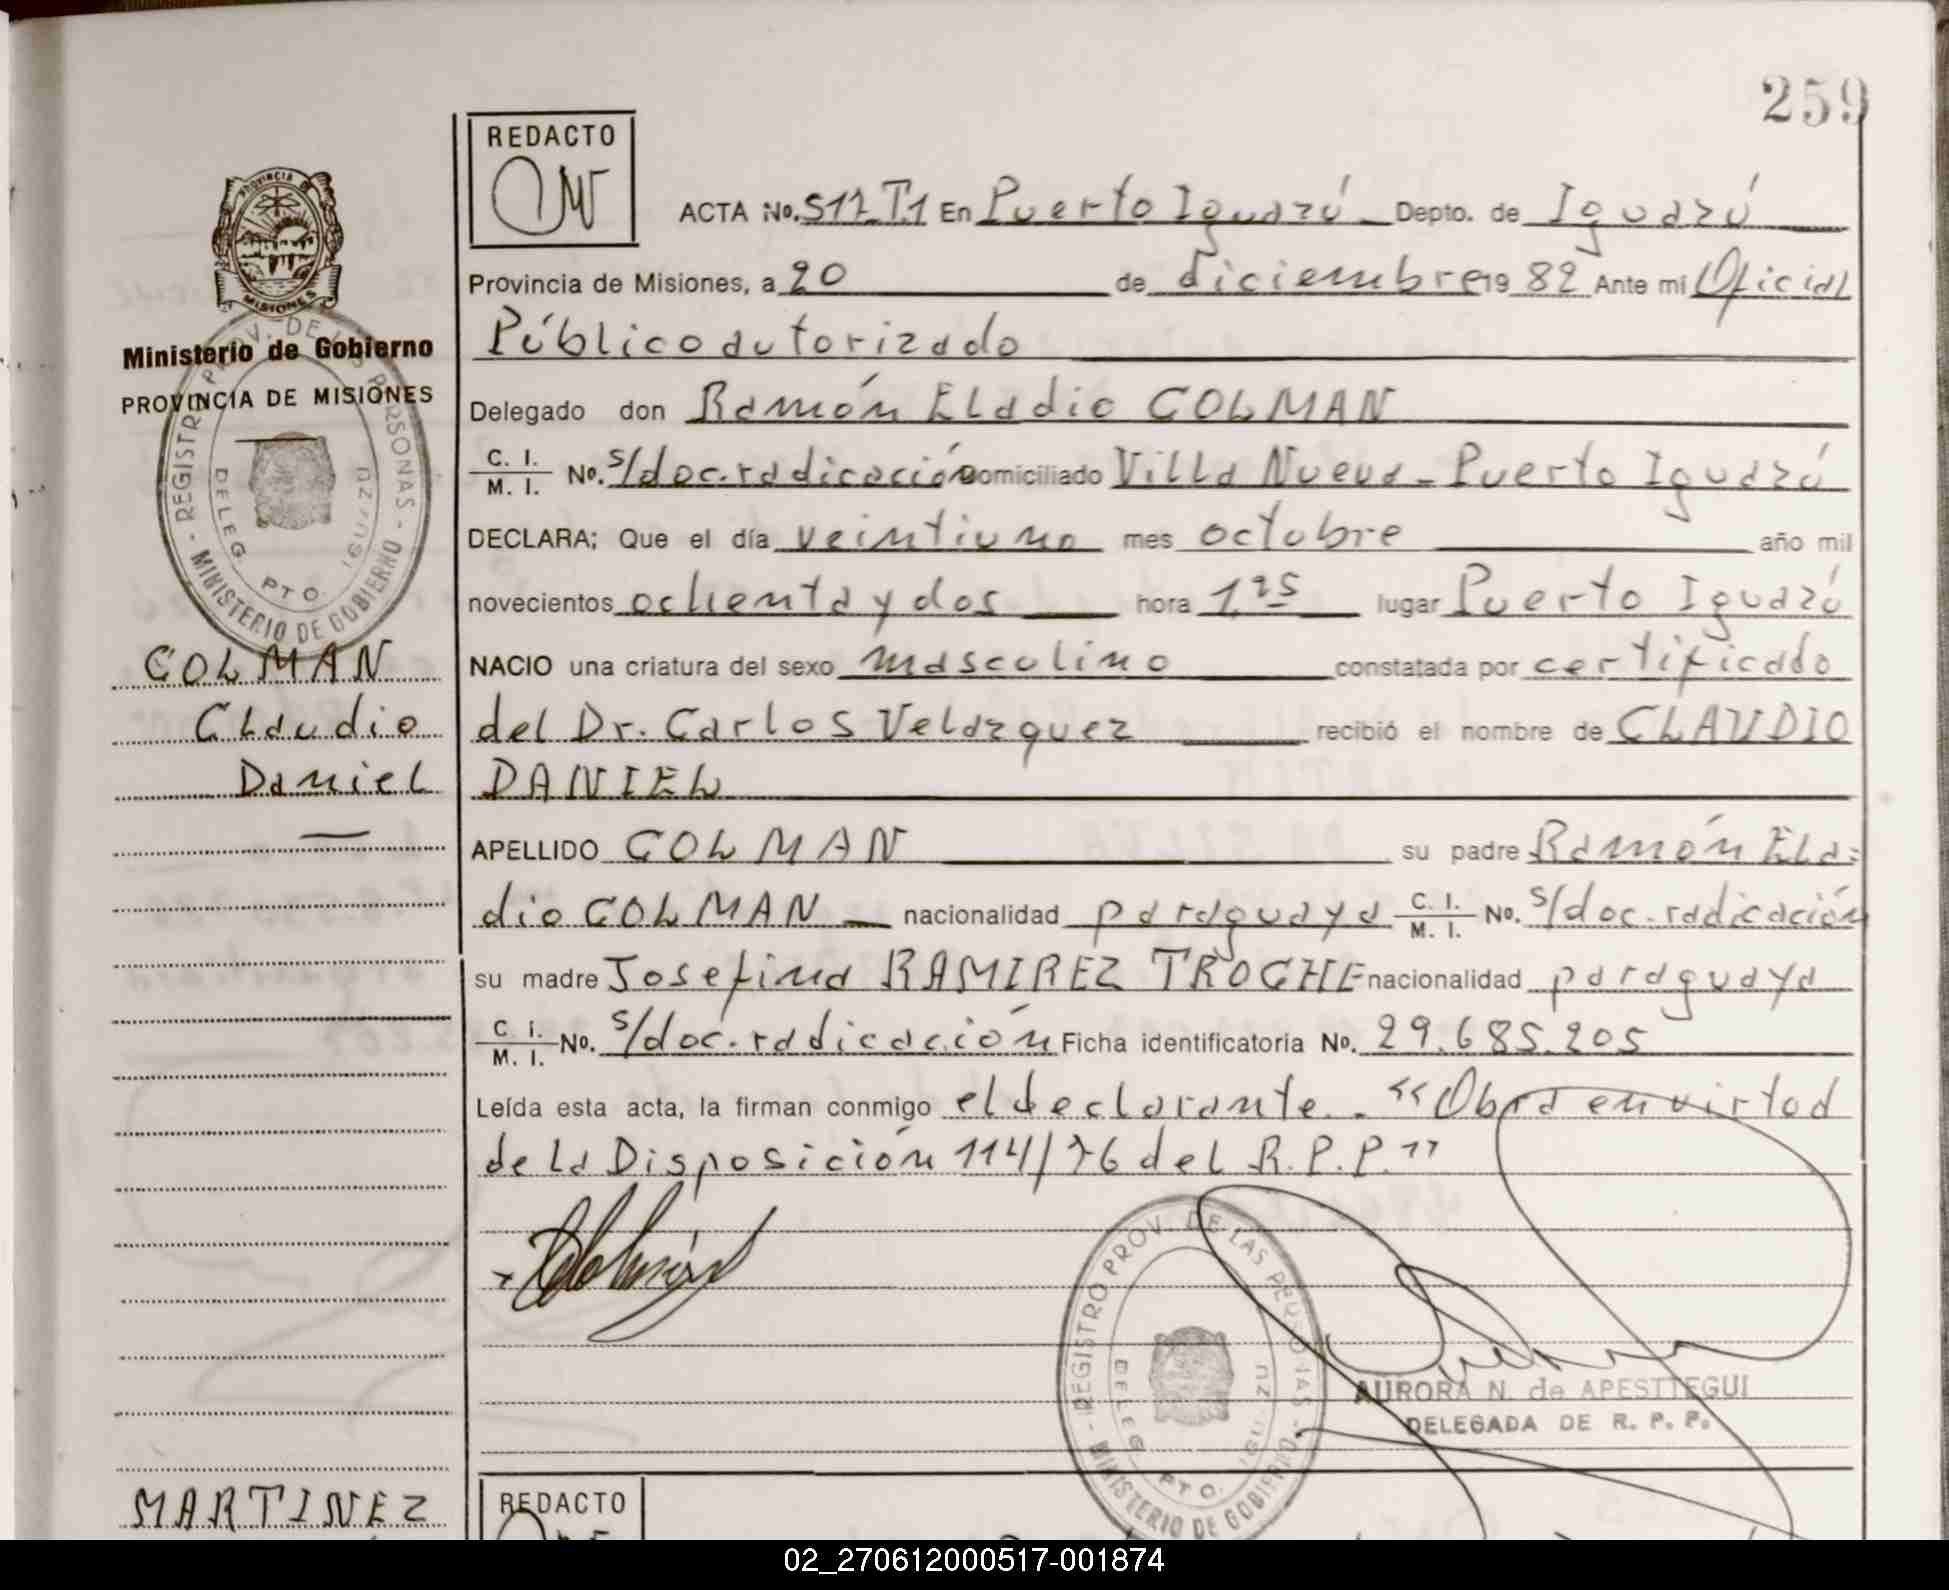 259
REDACTO
PROVINCIA DE
MISIONES
ACTA No. 517 T.1 En Puerto Iguazú Depto. de Iguazú
Provincia de Misiones, a 20 de diciembre 19 82 Ante mí Oficial
Público autorizado
Ministerio de Gobierno
PROVINCIA DE MISIONES
Delegado don Ramón Eladio COLMAN
C. I. / M. I. No. s/doc. radicación Domiciliado Villa Nueva - Puerto Iguazú
REGISTRO PROV. DE LAS PERSONAS - MINISTERIO DE GOBIERNO -
DELEG. PTO. IGUAZU
DECLARA; Que el día veintiuno mes octubre año mil
novecientos ochenta y dos hora 1,25 lugar Puerto Iguazú
COLMAN
NACIO una criatura del sexo masculino constatada por certificado
Claudio
del Dr. Carlos Velazquez recibió el nombre de CLAUDIO
Daniel
DANIEL
APELLIDO COLMAN su padre Ramón Ela=
dio COLMAN nacionalidad paraguaya C. I. / M. I. No. s/doc. radicación
su madre Josefina RAMIREZ TROCHE nacionalidad paraguaya
C. I. / M. I. No. s/doc. radicación Ficha identificatoria No. 29.685.205
Leída esta acta, la firman conmigo el declarante. - "Obra en virtud
de la Disposición 114/76 del R.P.P."
REGISTRO PROV. DE LAS PERSONAS - MINISTERIO DE GOBIERNO -
DELEG. PTO. IGUAZU
AURORA N. de APESTEGUI
DELEGADA DE R. P. P.
MARTINEZ
REDACTO
02_270612000517-001874